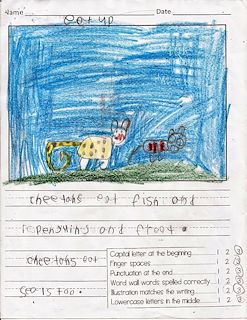 Name Date
Eat up
cheetahs eat fish and
penguins and froot.
cheetahs eat
seals too.
Capital letter at the beginning 1 2 3
Finger spaces 1 2 3
Punctuation at the end 1 2 3
Word wall words spelled correctly 1 2 3
Illustration matches the writing 1 2 3
Lowercase letters in the middle 1 2 3